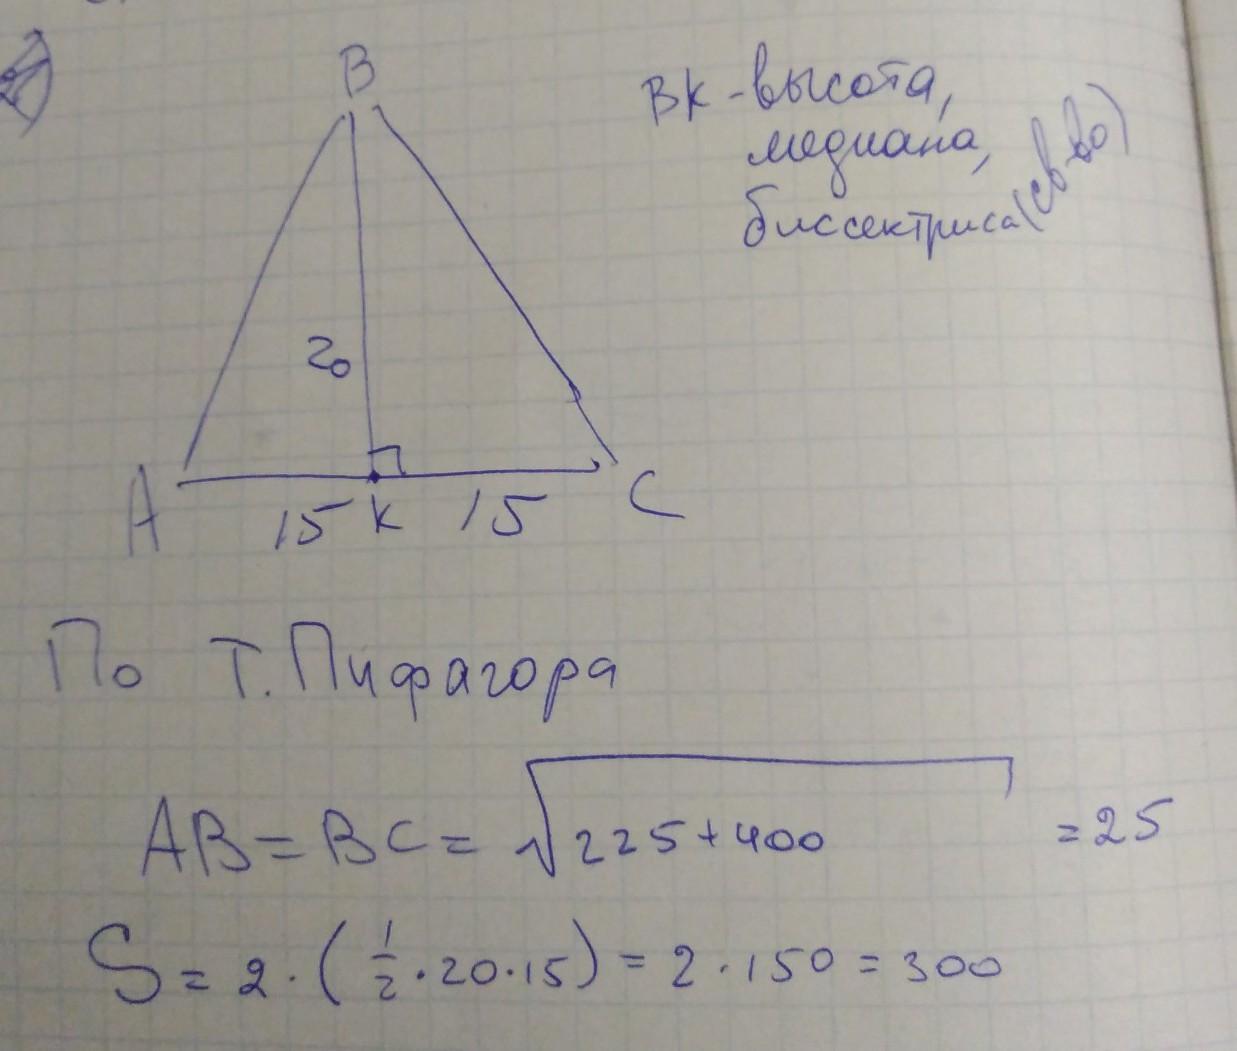 B
BK - высота,
медиана,
биссектриса (св-во)
20
A 15 K 15 C
По Т. Пифагора
AB = BC = √225+400 = 25
S = 2 · (1/2 · 20 · 15) = 2 · 150 = 300